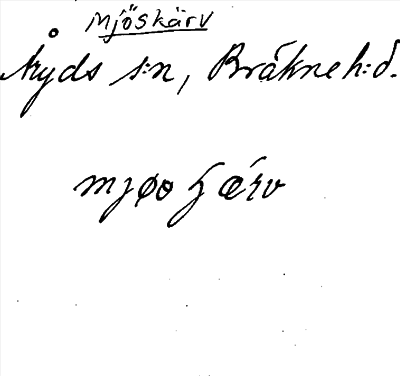 Mjöskärv
Åryds s:n, Bräkne h:d.
mjøoʃǽrv